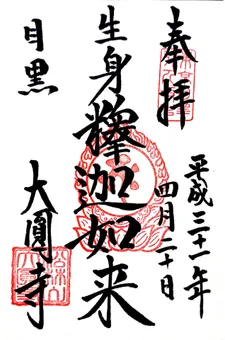 奉拝
平成三十一年
四月二十日
生身釋迦如来
目黒
大圓寺